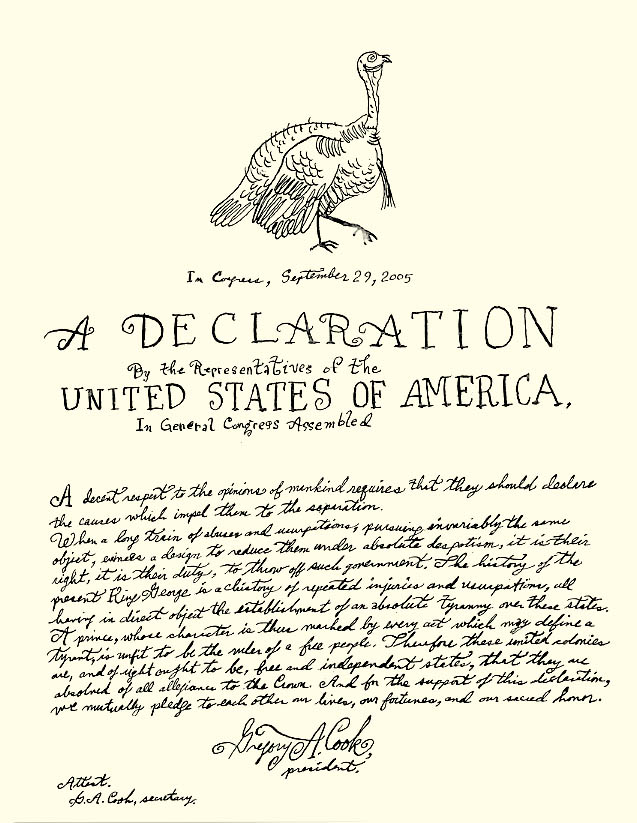 In Congress, September 29, 2005
A DECLARATION
By the Representatives of the
UNITED STATES OF AMERICA,
In General Congress Assembled
A decent respect to the opinions of mankind requires that they should declare
the causes which impel them to the separation.
When a long train of abuses and usurpations, pursuing invariably the same
object, evinces a design to reduce them under absolute despotism, it is their
right, it is their duty, to throw off such government. The history of the
present King George is a history of repeated injuries and usurpations, all
having in direct object the establishment of an absolute tyranny over these states.
A prince, whose character is thus marked by every act which may define a
tyrant, is unfit to be the ruler of a free people. Therefore these united colonies
are, and of right ought to be, free and independent states, that they are
absolved of all allegiance to the Crown. And for the support of this declaration,
we mutually pledge to each other our lives, our fortunes, and our sacred honor.
Gregory A. Cook,
president.
Attest.
G. A. Cook, secretary.